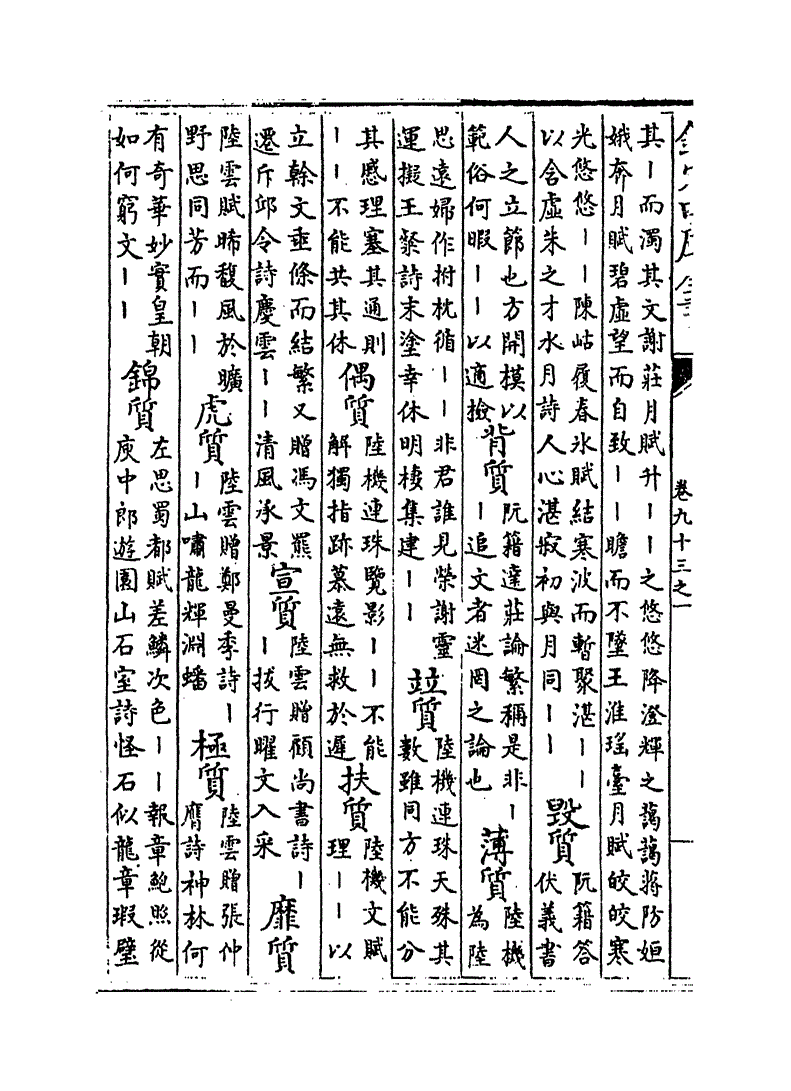 欽定四庫全書
卷九十三之一
其丨而濁其文謝莊月賦升丨丨之悠悠降澄輝之藹藹蔣防姮
娥奔月賦碧虛望而自致丨丨瞻而不墜王淮瑤臺月賦皎皎寒
光悠悠丨丨陳岵履春氷賦結寒波而暫聚湛丨丨
以含虛朱之才水月詩人心湛寂初與月同丨丨
毀質
阮籍答
伏義書
人之立節也方開模以
範俗何暇丨丨以適撿
背質
阮籍達莊論繁稱是非丨
丨追文者迷罔之論也
薄質
陸機
為陸
思遠婦作拊枕循丨丨非君誰見榮謝靈
運擬王粲詩末塗幸休明棲集建丨丨
竝質
陸機連珠天殊其
數雖同方不能分
其感理塞其通則
丨丨不能共其休
偶質
陸機連珠覽影丨丨不能
解獨指跡慕遠無救於遲
扶質
陸機文賦
理丨丨以
立榦文垂條而結繁又贈馮文羆
遷斥邱令詩慶雲丨丨清風承景
宣質
陸雲贈顧尚書詩丨
丨拔行曜文入采
靡質
陸雲賦晞馥風於曠
野思同芳而丨丨
虎質
陸雲贈鄭曼季詩丨
丨山嘯龍輝淵蟠
極質
陸雲贈張仲
膺詩神林何
有奇華妙實皇朝
如何窮文丨丨
錦質
左思蜀都賦差鱗次色丨丨報章鮑照從
庾中郎遊園山石室詩怪石似龍章瑕璧